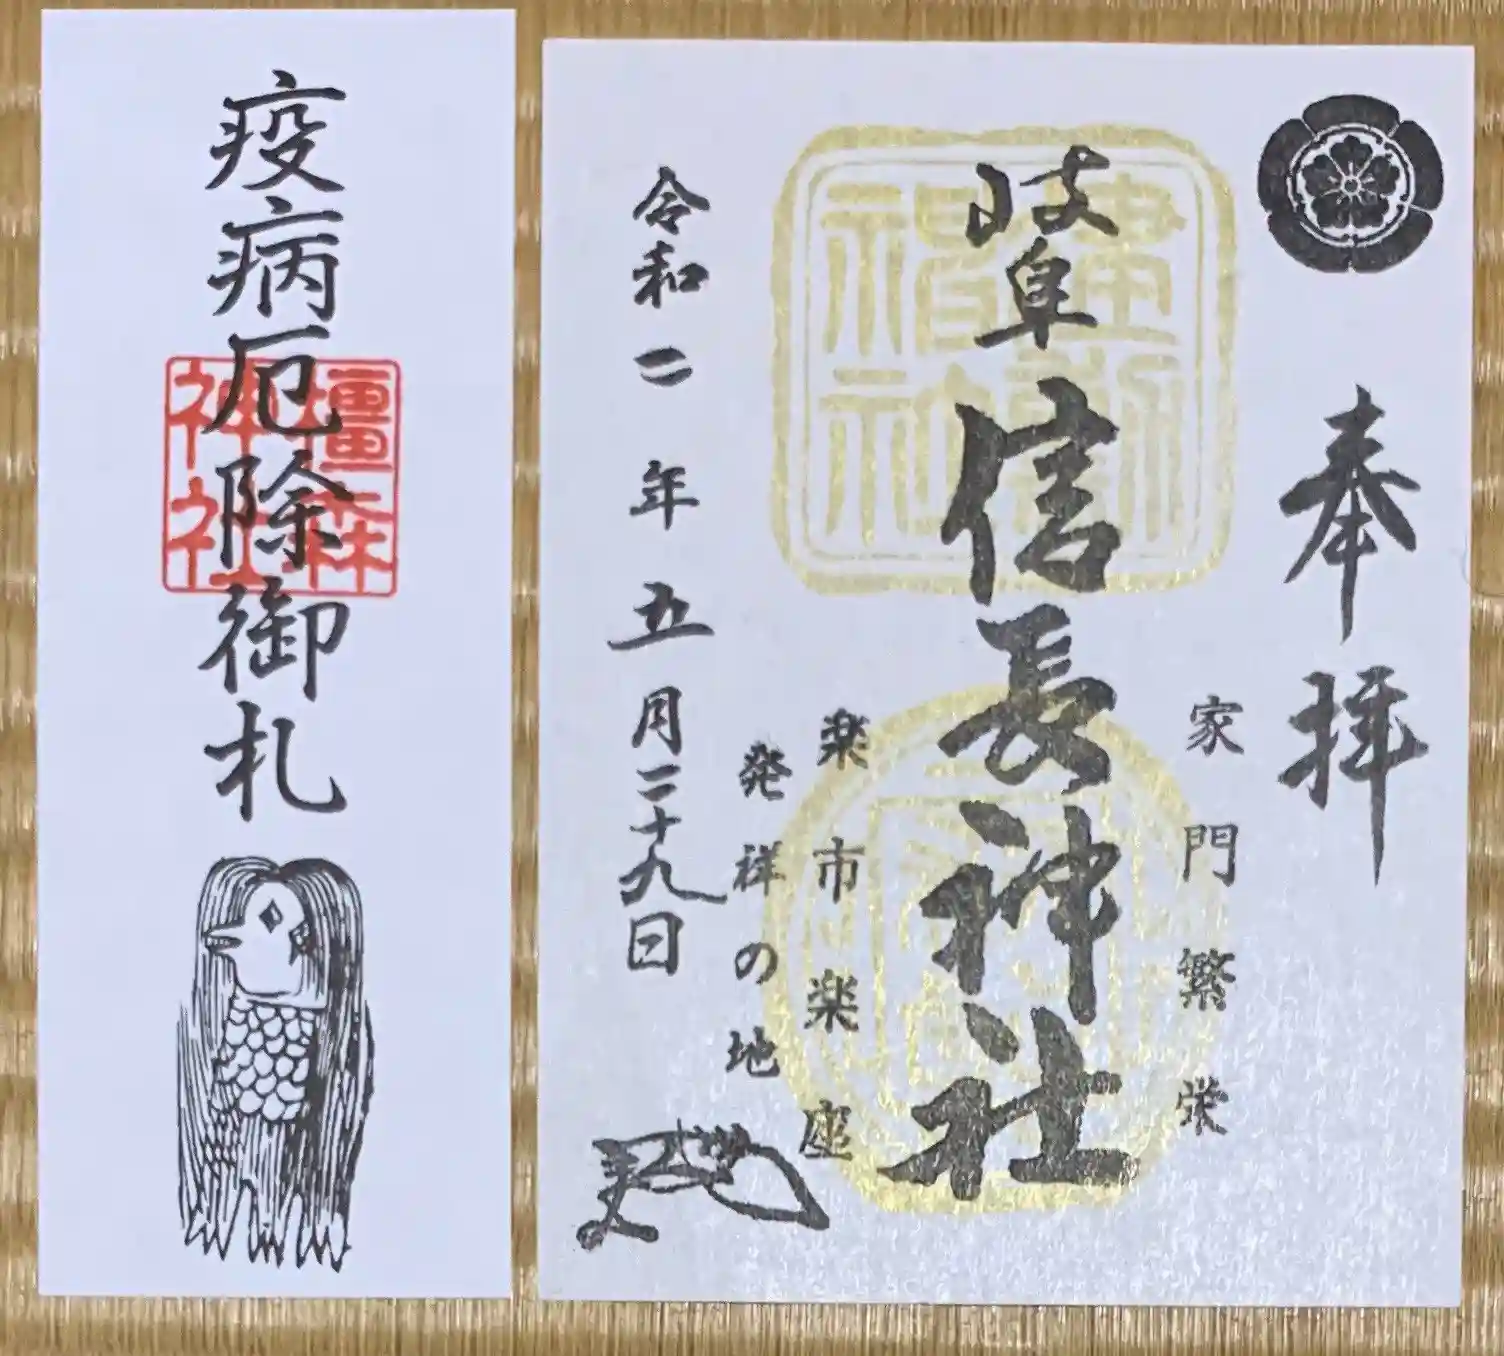 疫病厄除御札
橿森
神社
奉拝
家門繁栄
岐阜信長神社
建勲
神社
楽市楽座
発祥の地
令和二年五月二十九日